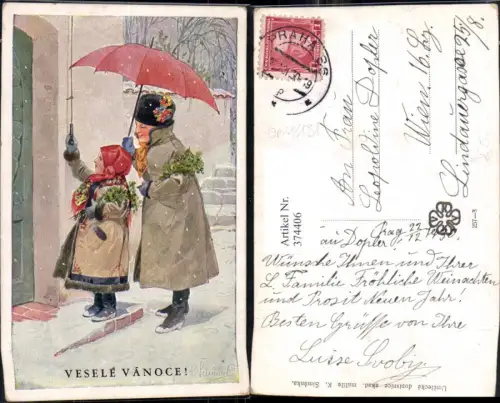 VESELÉ VÁNOCE!
PRAHA 25
An Frau
Leopoldine Dopler
Wien 16. Bz.
Lindauergasse 25/8.
Artikel Nr.
374406
251—3
Prag 22/12 1930
an Dopler!
Wünsche Ihnen und Ihrer
L. Familie Fröhliche Weinachten
und Prosit Neuen Jahr!
Besten Grüsse von Ihre
Luise Svoby
Umělecké dopisnice akad. malíře K. Šimůnka.